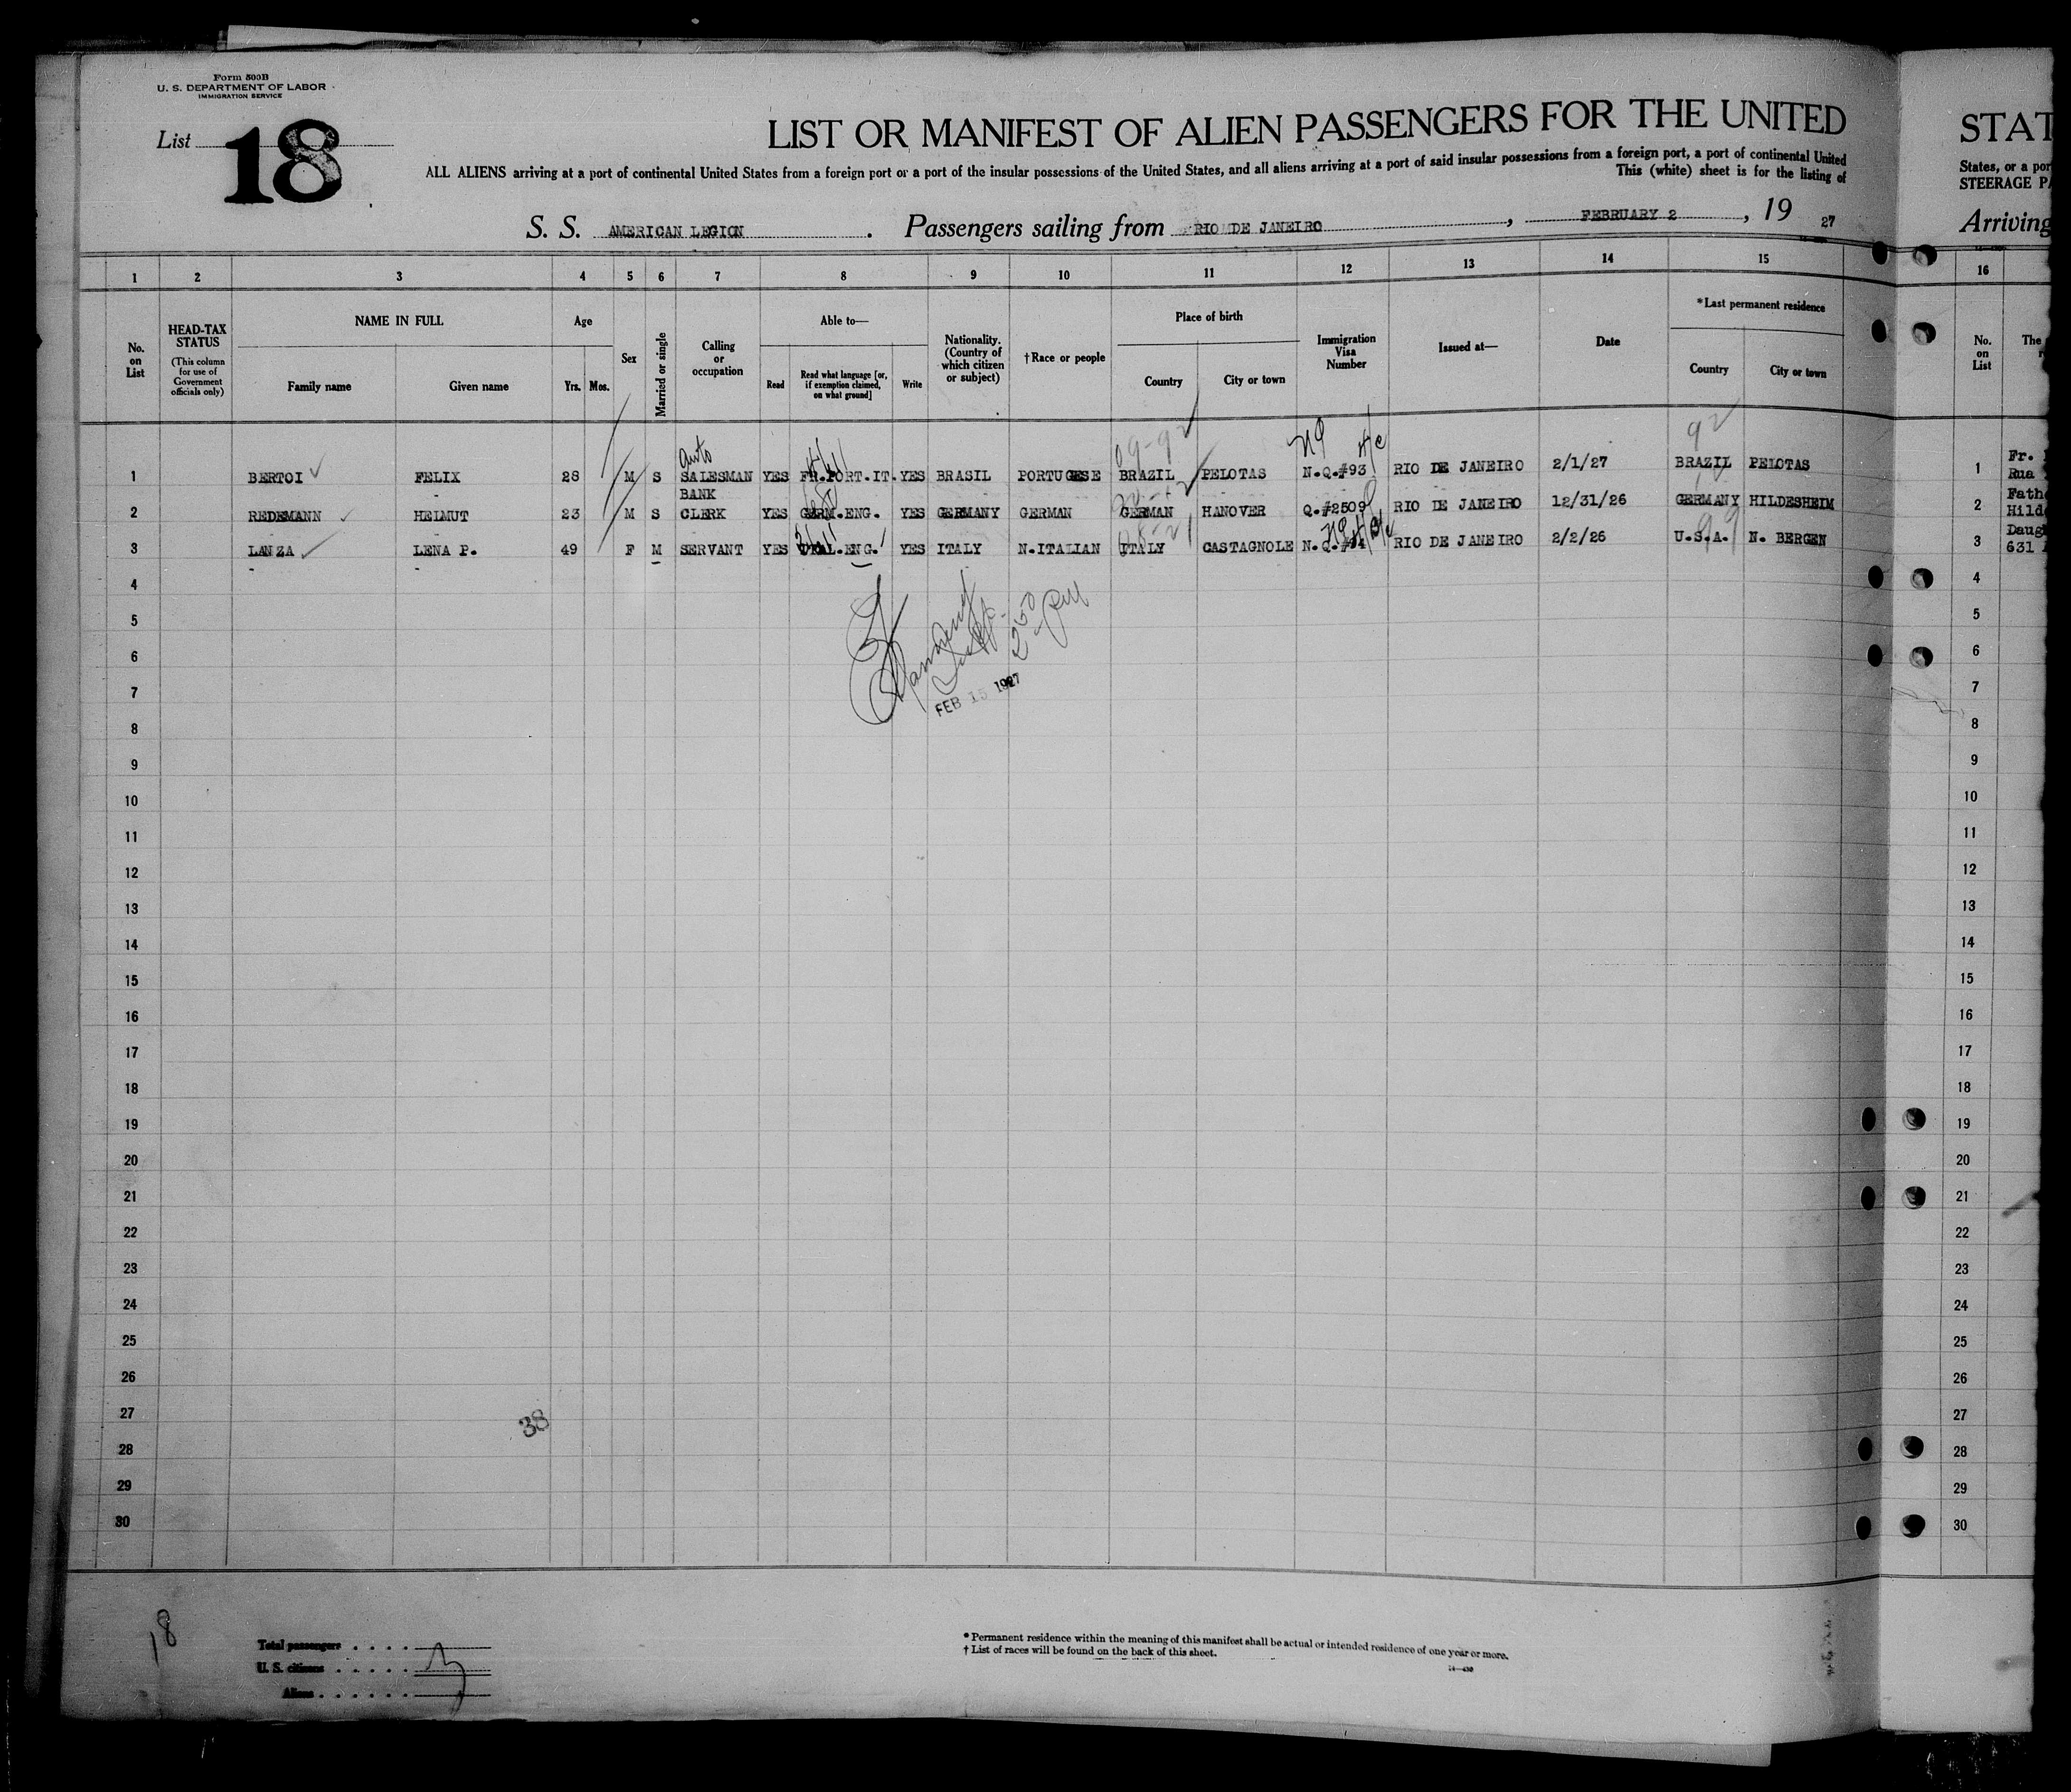 Form 500B
U. S. DEPARTMENT OF LABOR
IMMIGRATION SERVICE
List 18
LIST OR MANIFEST OF ALIEN PASSENGERS FOR THE UNITED
STAT
ALL ALIENS arriving at a port of continental United States from a foreign port or a port of the insular possessions of the United States, and all aliens arriving at a port of said insular possessions from a foreign port, a port of continental United
States, or a por
This (white) sheet is for the listing of
STEERAGE PA
S. S. AMERICAN LEGION . Passengers sailing from RIO DE JANEIRO , FEBRUARY 2 , 19 27
Arriving
1 2 3 4 5 6 7 8 9 10 11 12 13 14 15 16
No. on List
HEAD-TAX STATUS (This column for use of Government officials only)
NAME IN FULL
Family name Given name
Age
Yrs. Mos.
Sex
Married or single
Calling or occupation
Able to—
Read Read what language [or, if exemption claimed, on what ground] Write
Nationality. (Country of which citizen or subject)
†Race or people
Place of birth
Country City or town
Immigration Visa Number
Issued at—
Date
*Last permanent residence
Country City or town
No. on List
The
09-92 92
Auto
1 BERTOI FELIX 28 M S SALESMAN YES FR.PORT.IT. YES BRASIL PORTUGESE BRAZIL PELOTAS N.Q.#93 RIO DE JANEIRO 2/1/27 BRAZIL PELOTAS 1 Fr.
Rua
BANK
2 REDEMANN HELMUT 23 M S CLERK YES GERM.ENG. YES GERMANY GERMAN GERMAN HANOVER Q.#2509 RIO DE JANEIRO 12/31/26 GERMANY HILDESHEIM 2 Fath
Hild
3 LANZA LENA P. 49 F M SERVANT YES ITAL.ENG. YES ITALY N.ITALIAN ITALY CASTAGNOLE N.Q.#94 RIO DE JANEIRO 2/2/26 U.S.A. N. BERGEN 3 Daug
631
4 4
5 5
6 6
7 7
FEB 15 1927
8 8
9 9
10 10
11 11
12 12
13 13
14 14
15 15
16 16
17 17
18 18
19 19
20 20
21 21
22 22
23 23
24 24
25 25
26 26
27 27
38
28 28
29 29
30 30
18
Total passengers . . . .
U. S. citizens . . . . .
Aliens . . . . . .
3
*Permanent residence within the meaning of this manifest shall be actual or intended residence of one year or more.
†List of races will be found on the back of this sheet.